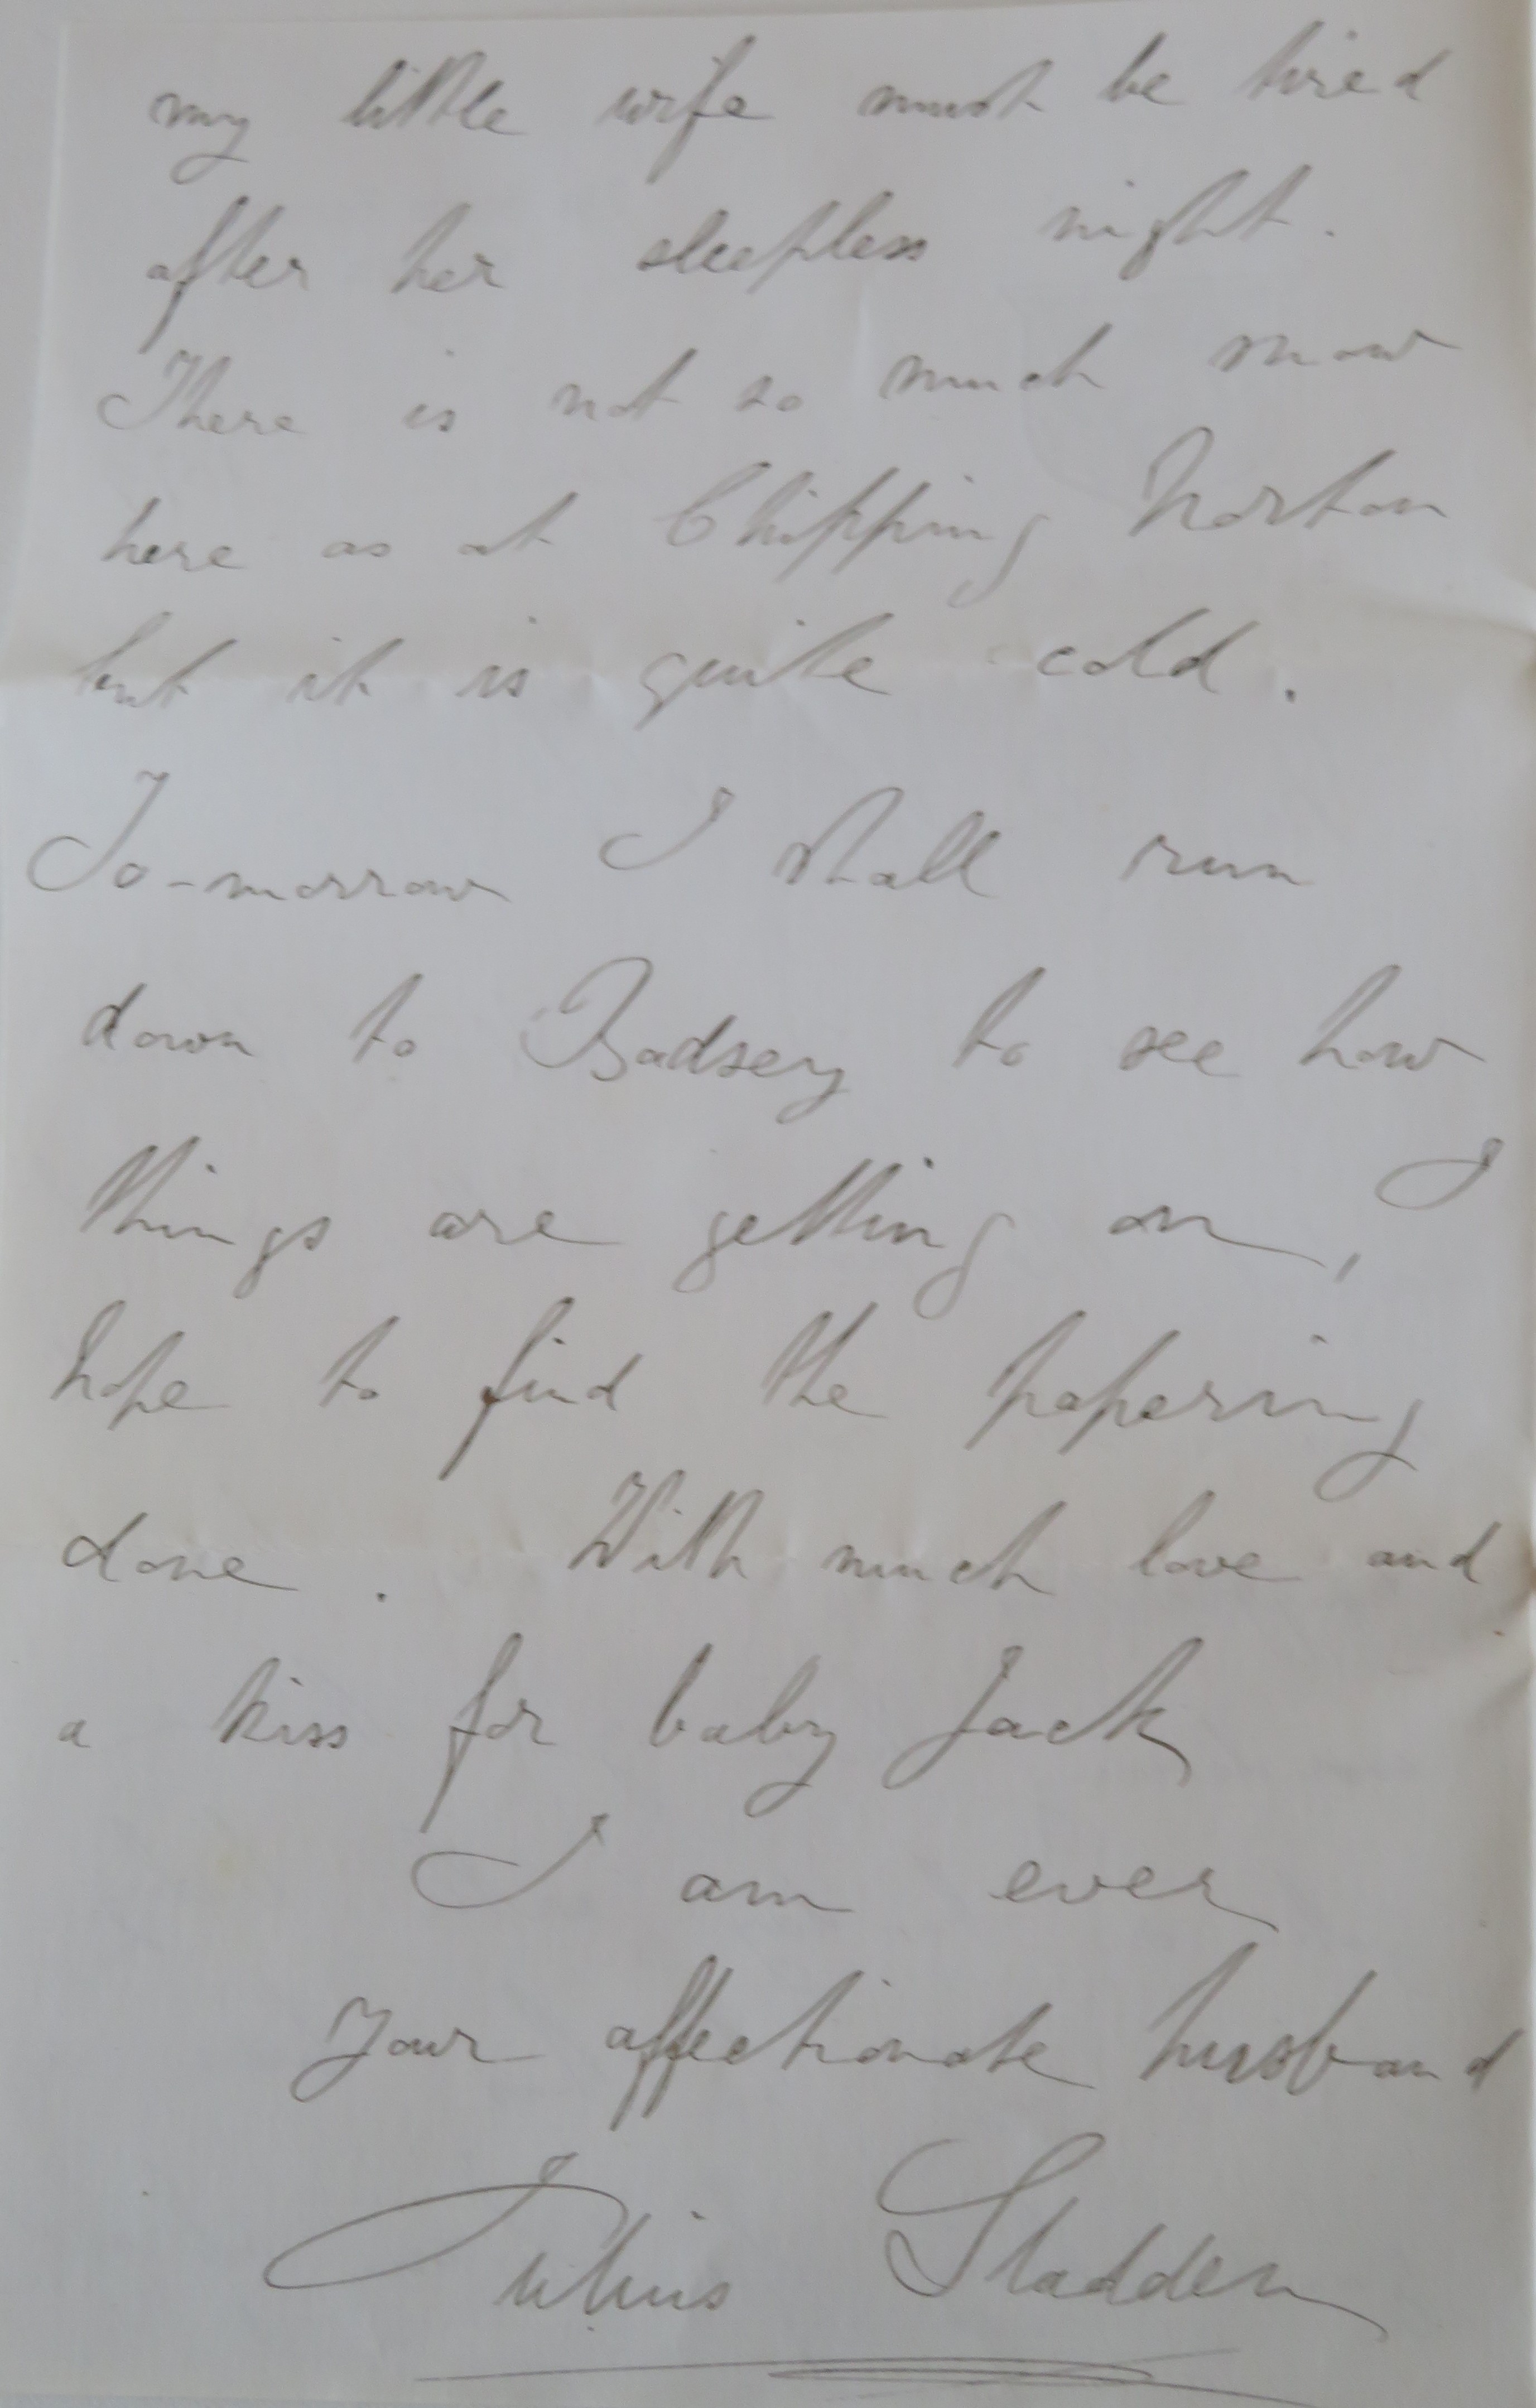 my little wife must be tired
after her sleepless night.
There is not so much snow
here as at Chipping Norton
but it is quite cold.
To-morrow I shall run
down to Badsey to see how
things are getting on, I
hope to find the papering
done. With much love and
a kiss for baby Jack
I am ever
Your affectionate husband
Julius Sladden